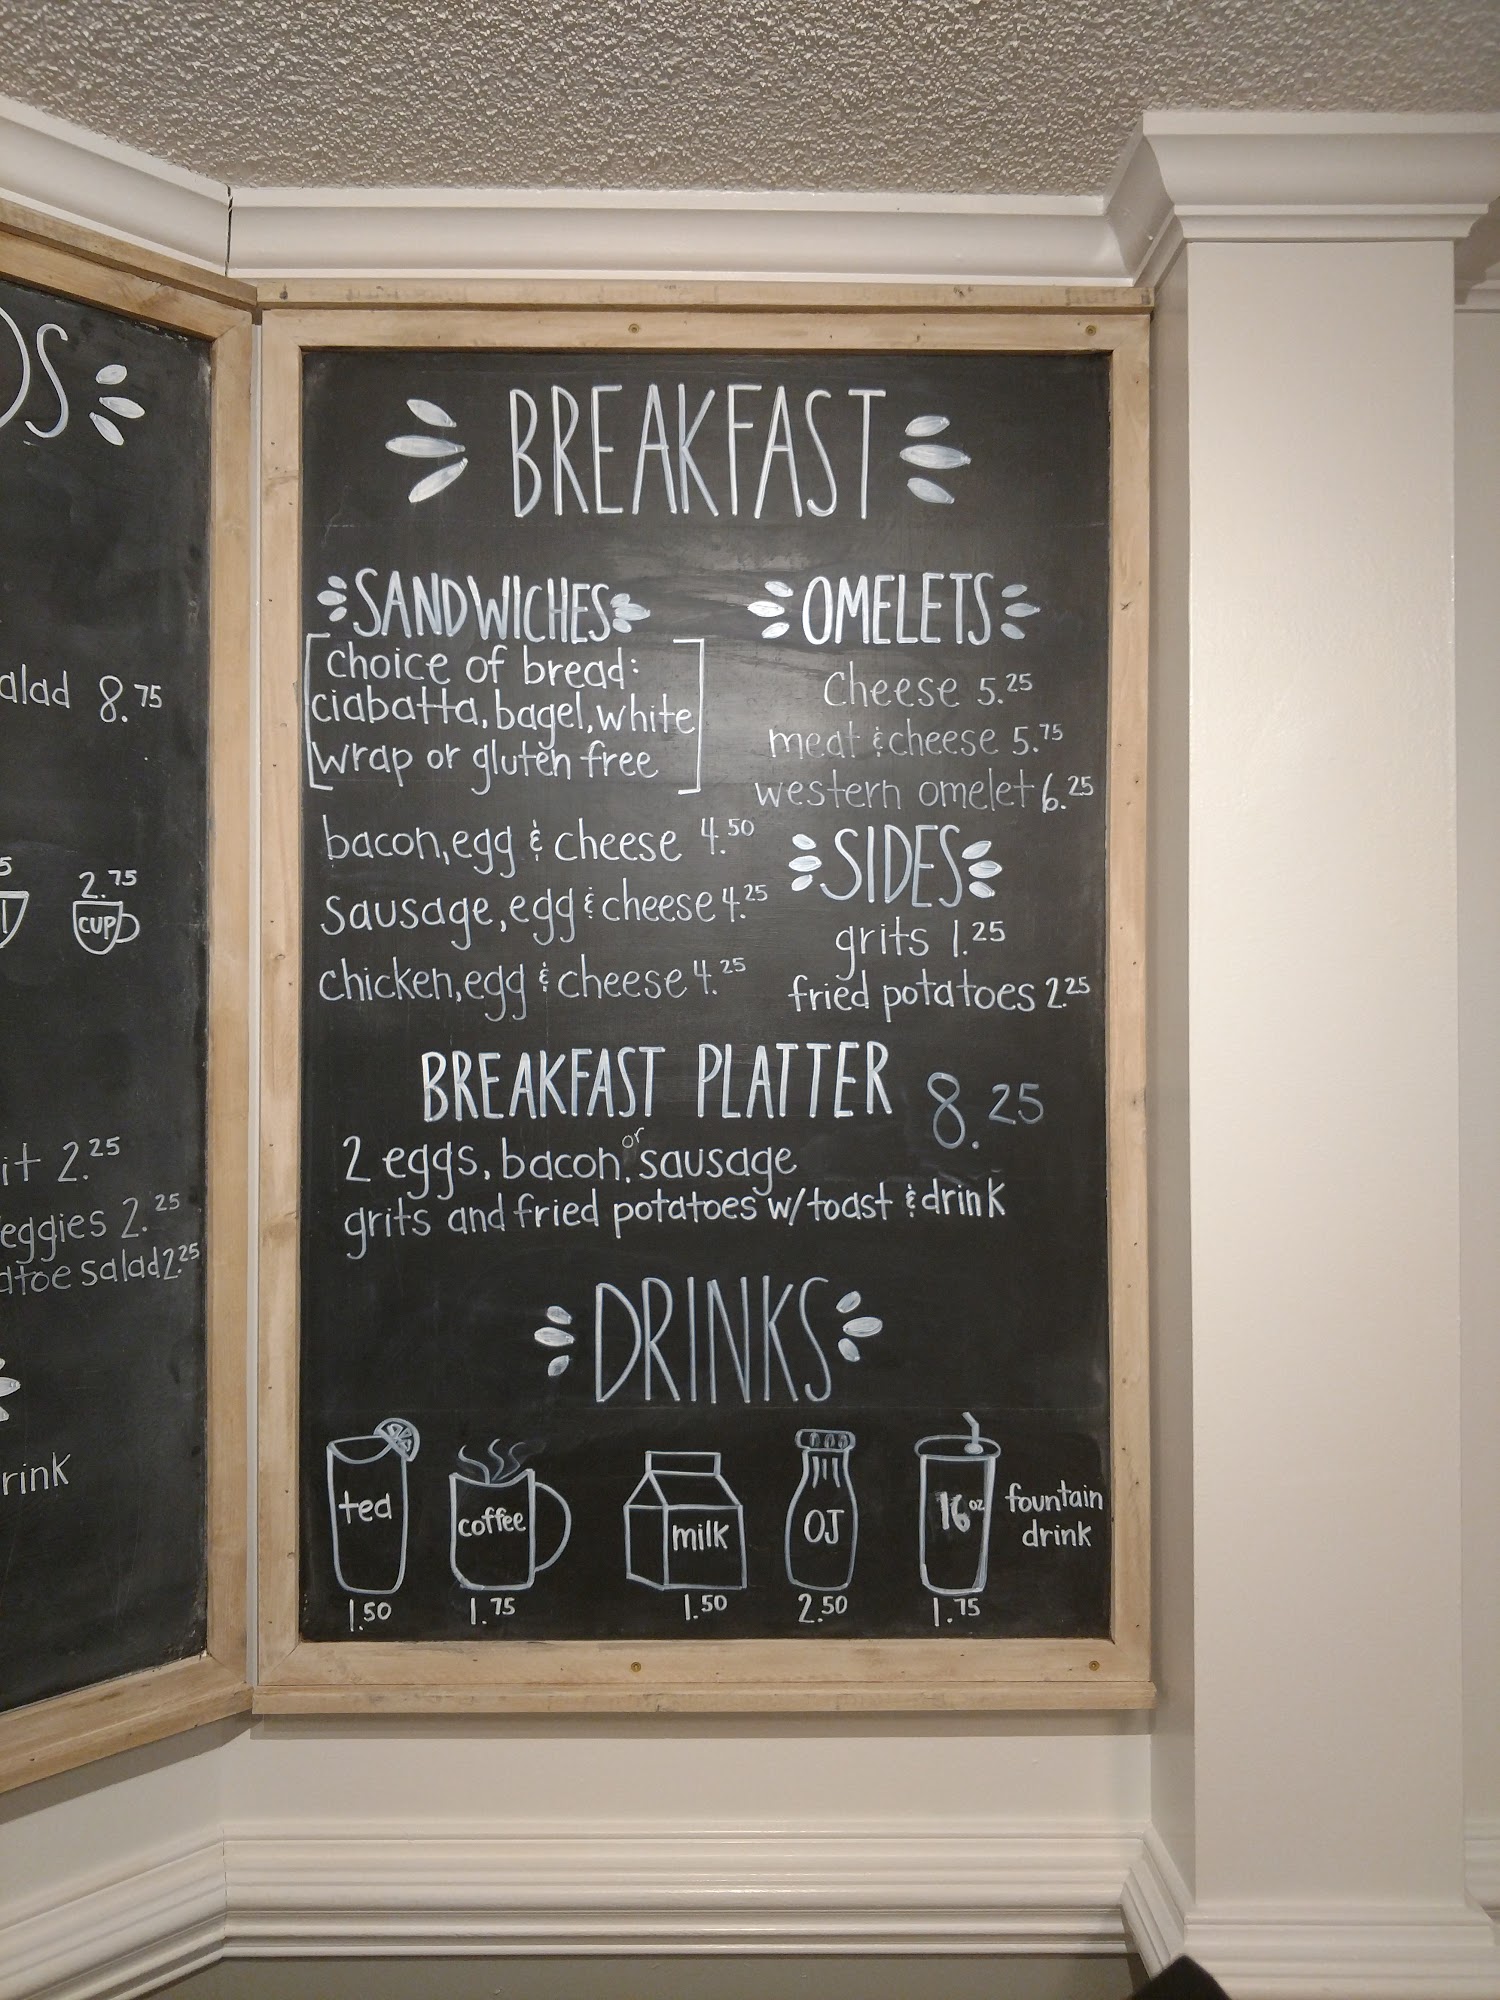 OS
alad 8.75
5 2.75
CUP
it 2.25
eggies 2.25
atoe salad 2.25
rink
BREAKFAST
SANDWICHES
choice of bread:
ciabatta, bagel, white
wrap or gluten free
bacon, egg & cheese 4.50
sausage, egg & cheese 4.25
chicken, egg & cheese 4.25
OMELETS
cheese 5.25
meat & cheese 5.75
western omelet 6.25
SIDES
grits 1.25
fried potatoes 2.25
BREAKFAST PLATTER 8.25
2 eggs, bacon, or sausage
grits and fried potatoes w/toast & drink
DRINKS
tea
1.50
coffee
1.75
milk
1.50
OJ
2.50
16oz
1.75
fountain
drink